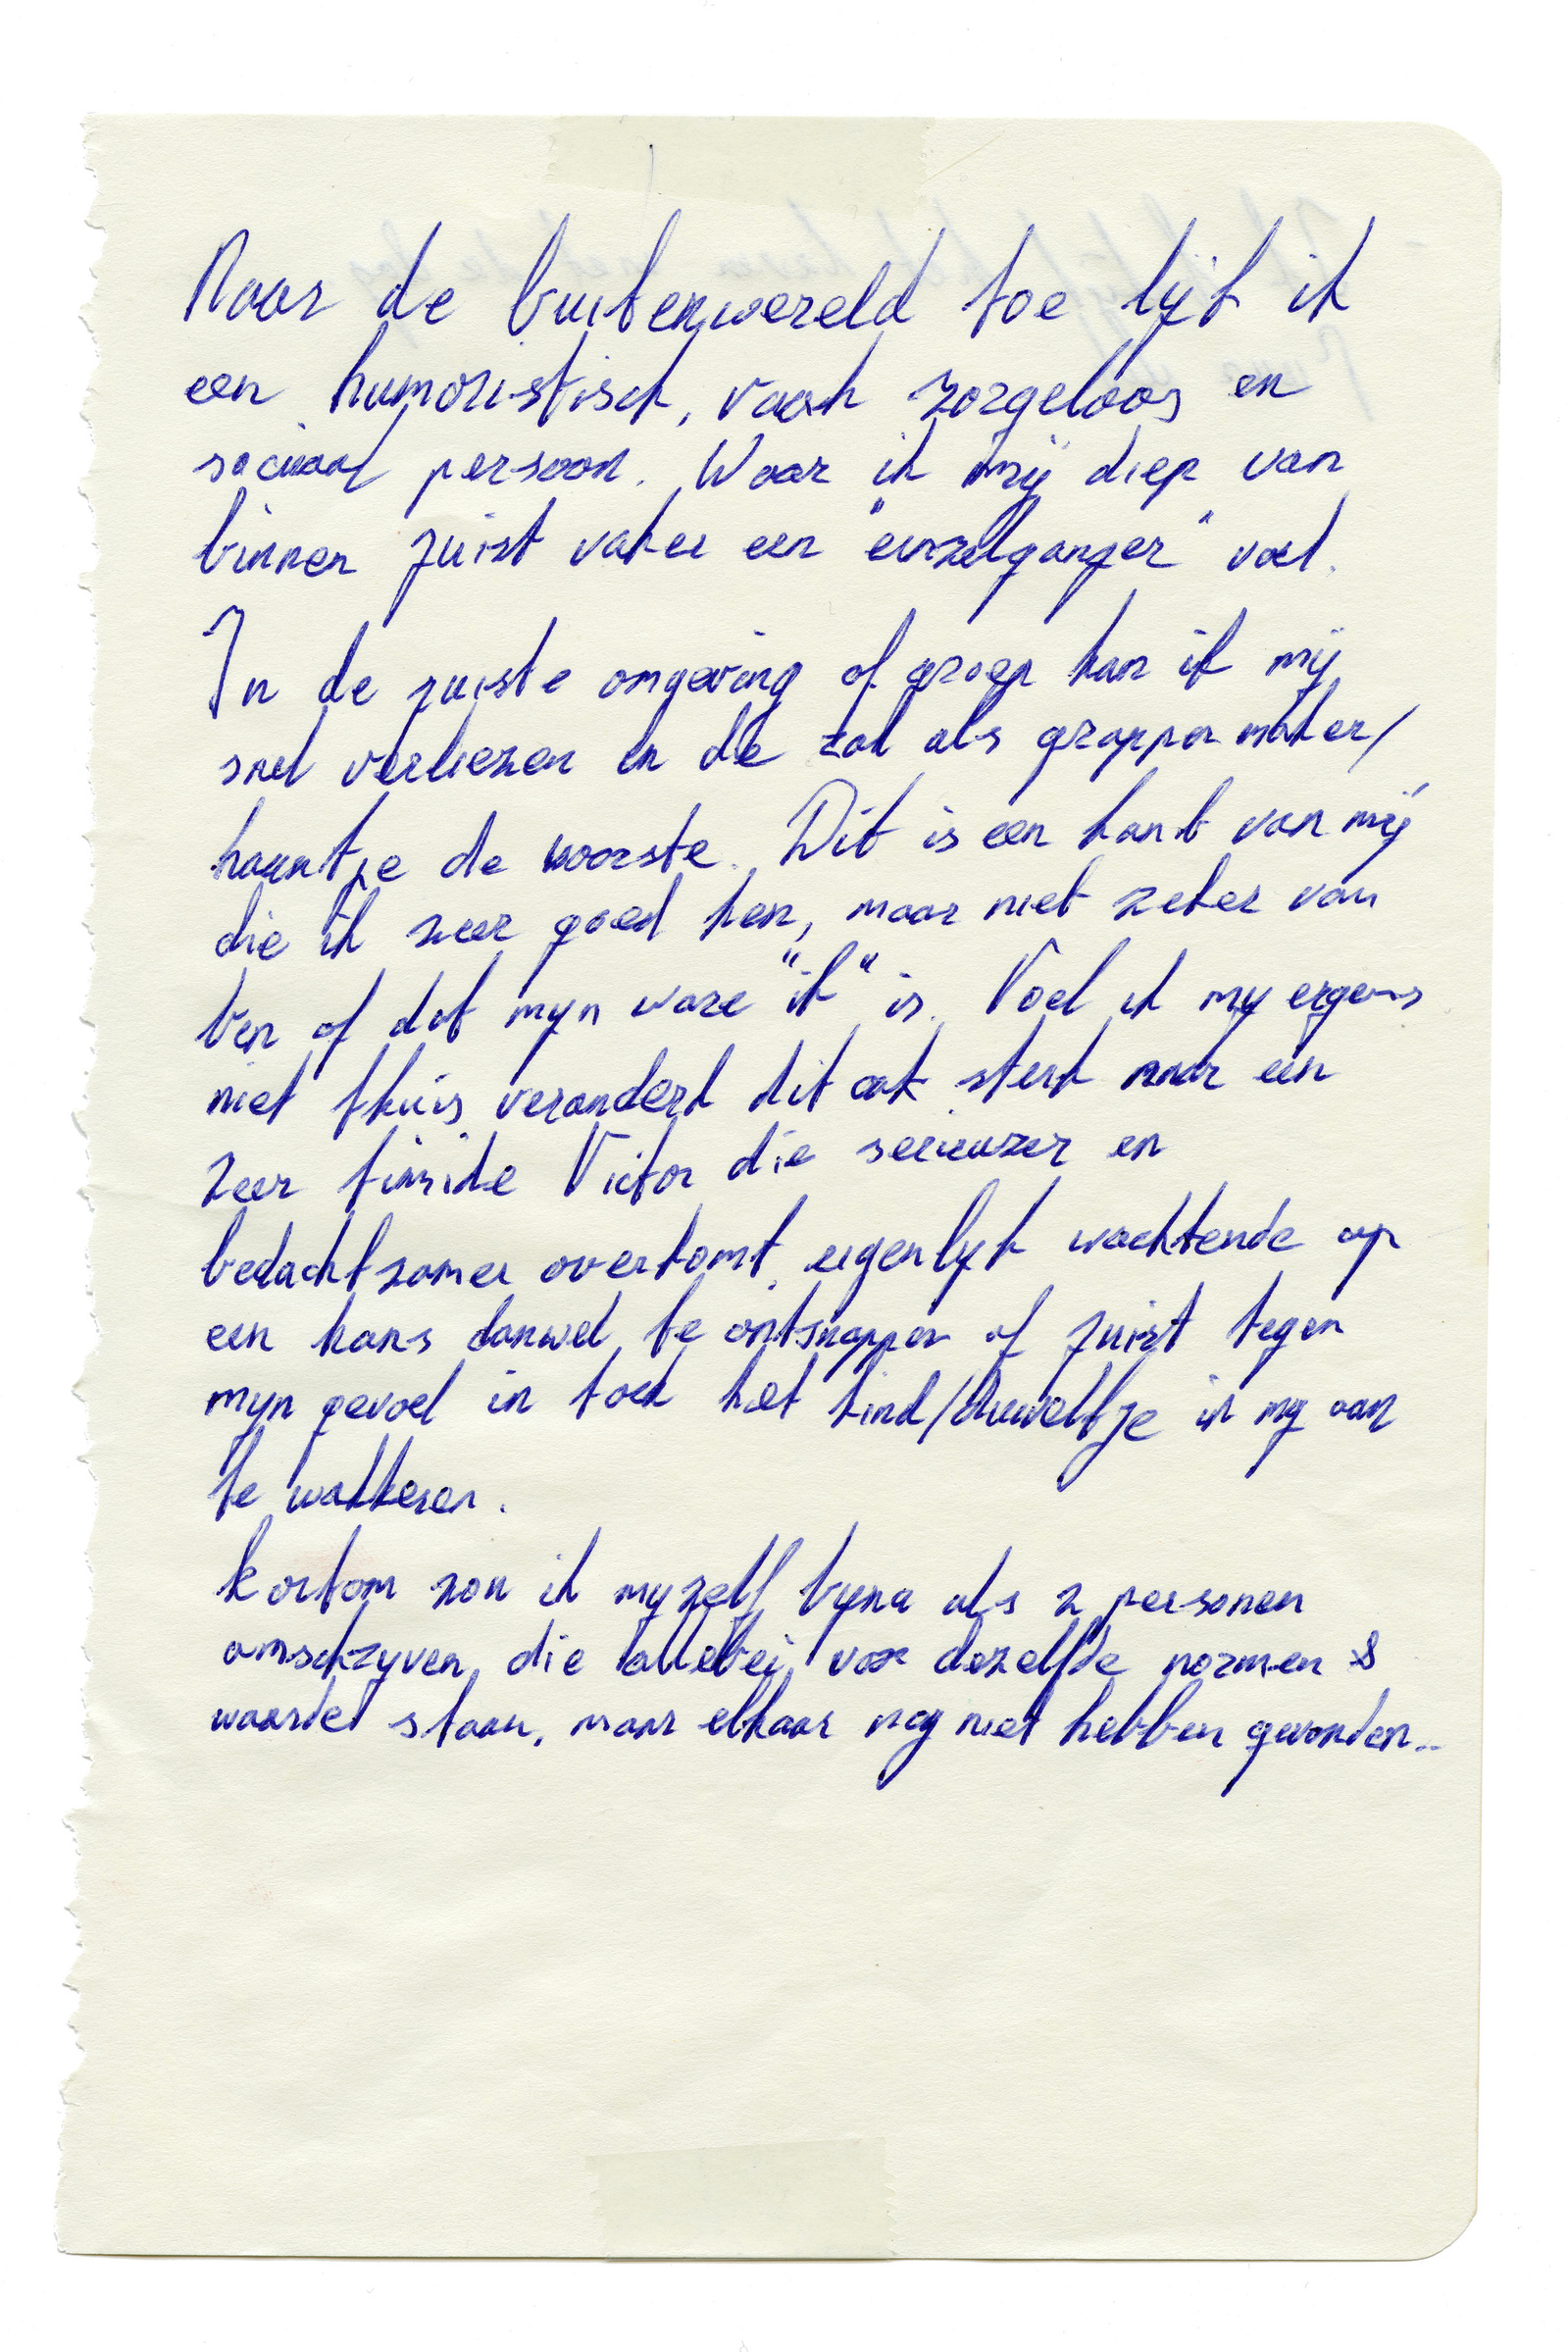 Naar de buitenwereld toe lijk ik
een humoristisch, vaak zorgeloos en
sociaal persoon. Waar ik mij diep van
binnen juist vaker een "einzelganger" voel.
In de juiste omgeving of groep kan ik mij
snel verliezen in de rol als grappenmaker/
haantje de voorste. Dit is een kant van mij
die ik zeer goed ken, maar niet zeker van
ben of dat mijn ware "ik" is. Voel ik mij ergens
niet thuis veranderd dit ook sterk naar een
zeer timide Victor die serieuzer en
bedachtzamer overkomt, eigenlijk wachtende op
een kans danwel te ontsnappen of juist tegen
mijn gevoel in toch het kind/duiveltje in mij aan
te wakkeren.
Kortom zou ik mijzelf bijna als 2 personen
omschrijven, die allebei voor dezelfde normen &
waarde staan, maar elkaar nog niet hebben gevonden..